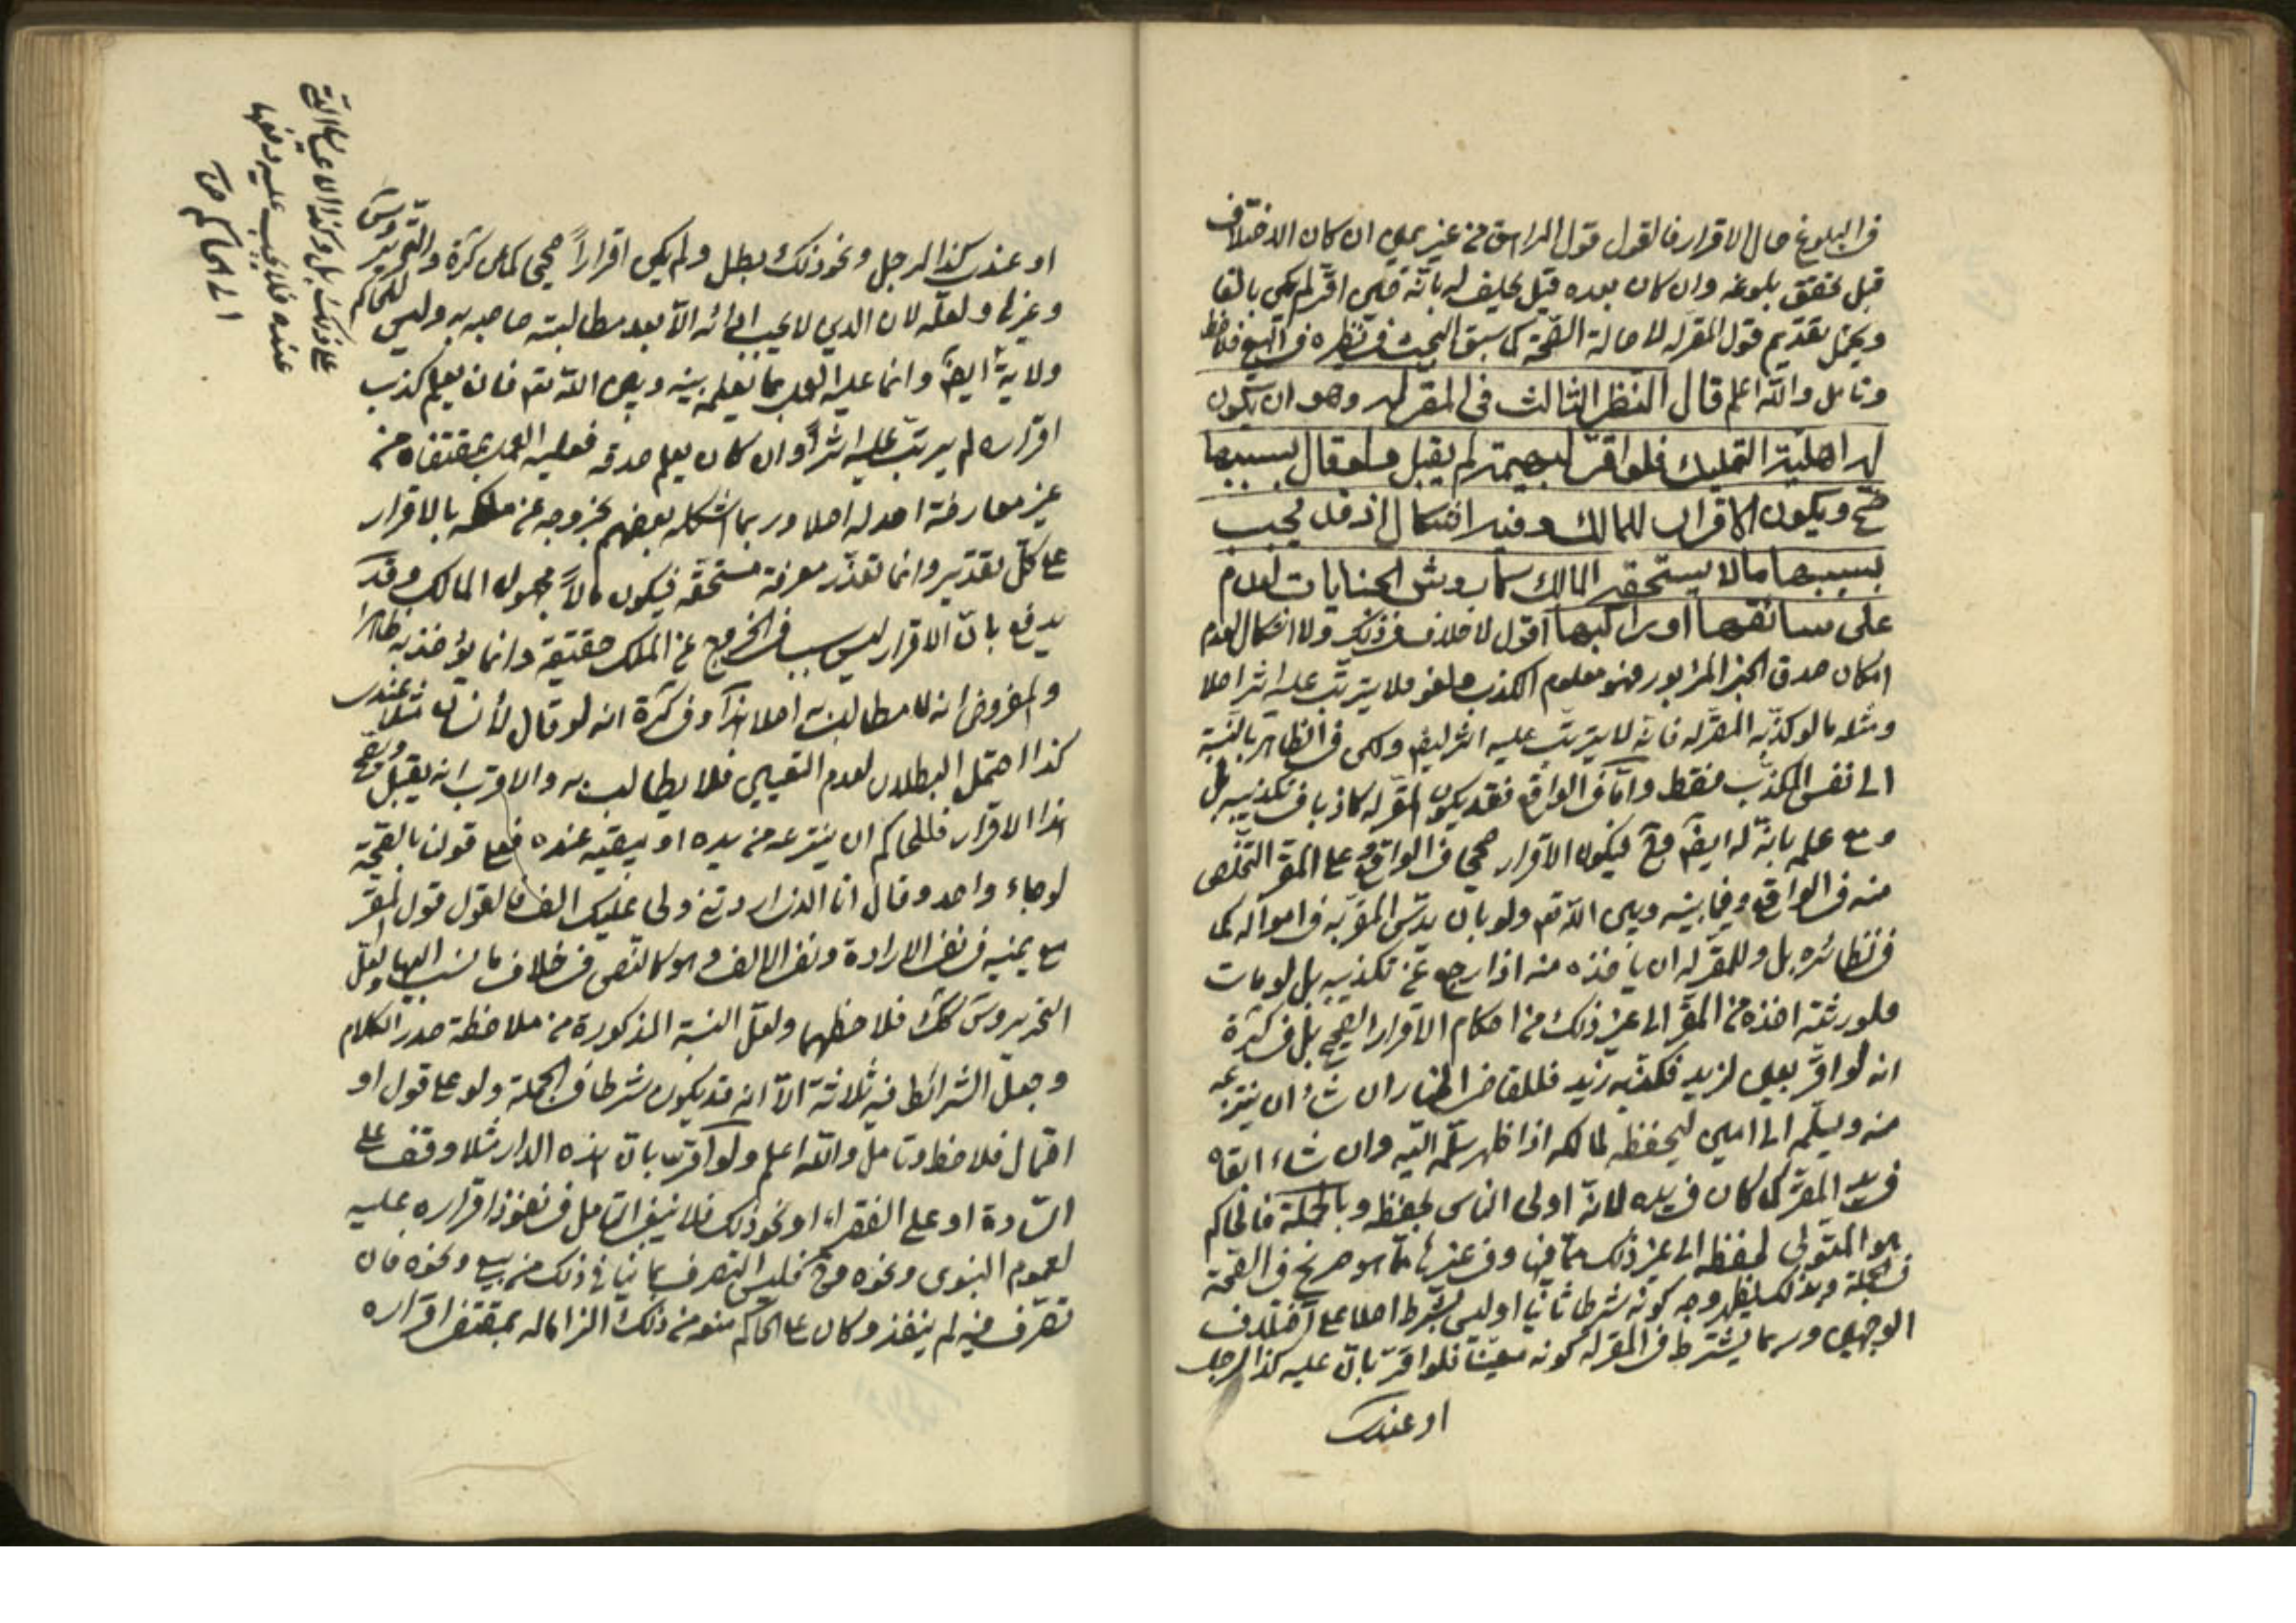 في البلوغ حال الاقرار فالقول قول المراهق من غير يمين ان كان الاختلاف
قبل تحقق بلوغه وان كان بعده قيل يحلف له بانه حين اقر لم يكن بالغا
ويحتمل تقديم قول المقر له لاصالة الصحة كما سبق البحث في نظيره في البيع فلاحظ
وتامل والله اعلم قال النظر الثالث في المقر له وهو ان يكون
له اهلية التمليك فلو اقر لبهيمة لم يقبل ولو قال بسببها
صح ويكون الاقرار للمالك وفيه اشكال اذ قد يجب
بسببها ما لا يستحقه المالك كاروش الجنايات
على سائقها او راكبها اقول لا خلاف في ذلك ولا اشكال لعدم
امكان صدق الخبر المزبور فهو معلوم الكذب فلغو فلا يترتب عليه اثر اصلا
ومثله ما لو كذبه المقر له فانه لا يترتب عليه اثر ايضا ولكن في الظاهر بالنسبة
الى نفس المكذب فقط واما في الواقع فقد يكون المقر له كاذبا في تكذيبه بل
ومع علمه بانه له ايضا فح فيكون الاقرار صحيحا في الواقع وعلى المقر التخلص
منه في الواقع وفيما بينه وبين الله تعم ولو بان يدس المقر به في امواله كما
في نظائره بل وللمقر له ان ياخذه منه اذا رجع عن تكذيبه بل لو مات
فلورثته اخذه من المقر الى غير ذلك من احكام الاقرار الصحيح بل في كرة
انه لو اقر بعين لزيد فكذبه زيد فللقاضي الخيار ان شاء ان ينتزعه
منه ويسلمه الى امين ليحفظه لمالكه اذا ظهر سلمه اليه وان شاء ابقاه
في يد المقر كما كان في يده لانه اولى الناس بحفظه وبالجملة فالحاكم
هو المتولى لحفظه الى غير ذلك مما فيها وفي غيرها مما هو صريح في الصحة
في الجملة وبذلك يظهر وجه كونه شرطا ثانيا او ليس بشرط اصلا على اختلاف
الوجهين وربما يشترط في المقر له كونه معينا فلو اقر بان عليه كذا لرجل
او عندى
او عندى كذا لرجل ونحو ذلك بطل ولم يكن اقرارا صحيحا كما عن كرة والتحرير وس
وغيرها ولعله لان الدين لا يجب ادائه الا بعد مطالبة صاحبه به وليس للحاكم
ولاية ايضا وانما عليه العمل بما يعلمه بينه وبين الله تعم فان يعلم كذب
اقراره لم يرتب عليه اثرا وان كان يعلم صدقه فعليه العمل بمقتضاه من
غير معارضة احد له اصلا وربما اشكله بعضهم بخروجه عن ملكه بالاقرار
على كل تقدير وانما تعذر معرفة مستحقه فيكون مالا مجهول المالك وقد
يدفع بان الاقرار ليس سببا في الخروج عن الملك حقيقة وانما يؤاخذ به ظاهرا
والمفروض انه لا مطالب به اصلا هذا وفي كرة انه لو قال لانسان مثلا عندى
كذا احتمل البطلان لعدم التعيين فلا يطالب به والاقرب انه يقبل ويصح
هذا الاقرار فللحاكم ان ينتزعه من يده او يبقيه عنده فعلى قولنا بالصحة
لو جاء واحد وقال انا الذي اردتني ولي عليك الف فالقول قول المقر
مع يمينه في نفي الارادة ونفي الالف وهو كالنص في خلاف ما نسب اليها ولعل
التحرير وس كك فلاحظهما ولعل النسبة المذكورة من ملاحظة صدر الكلام
وجعل الشرائط فيه ثلاثة الا انه قد يكون شرطا في الجملة ولو على قول او
احتمال فلاحظ وتامل والله اعلم ولو اقر بان هذه الدار مثلا وقف على
السادة او على الفقراء او نحو ذلك فلا ينبغي التامل في نفوذ اقراره عليه
لعموم النبوي ونحوه وح فليس له التصرف بما ينافي ذلك من بيع ونحوه فان
تصرف فيه لم ينفذ وكان على الحاكم منعه من ذلك الزاما له بمقتضى اقراره
على ذلك بل وكذا الاعيان التي
عنده فلا يجب عليه دفعها
الى الحاكم